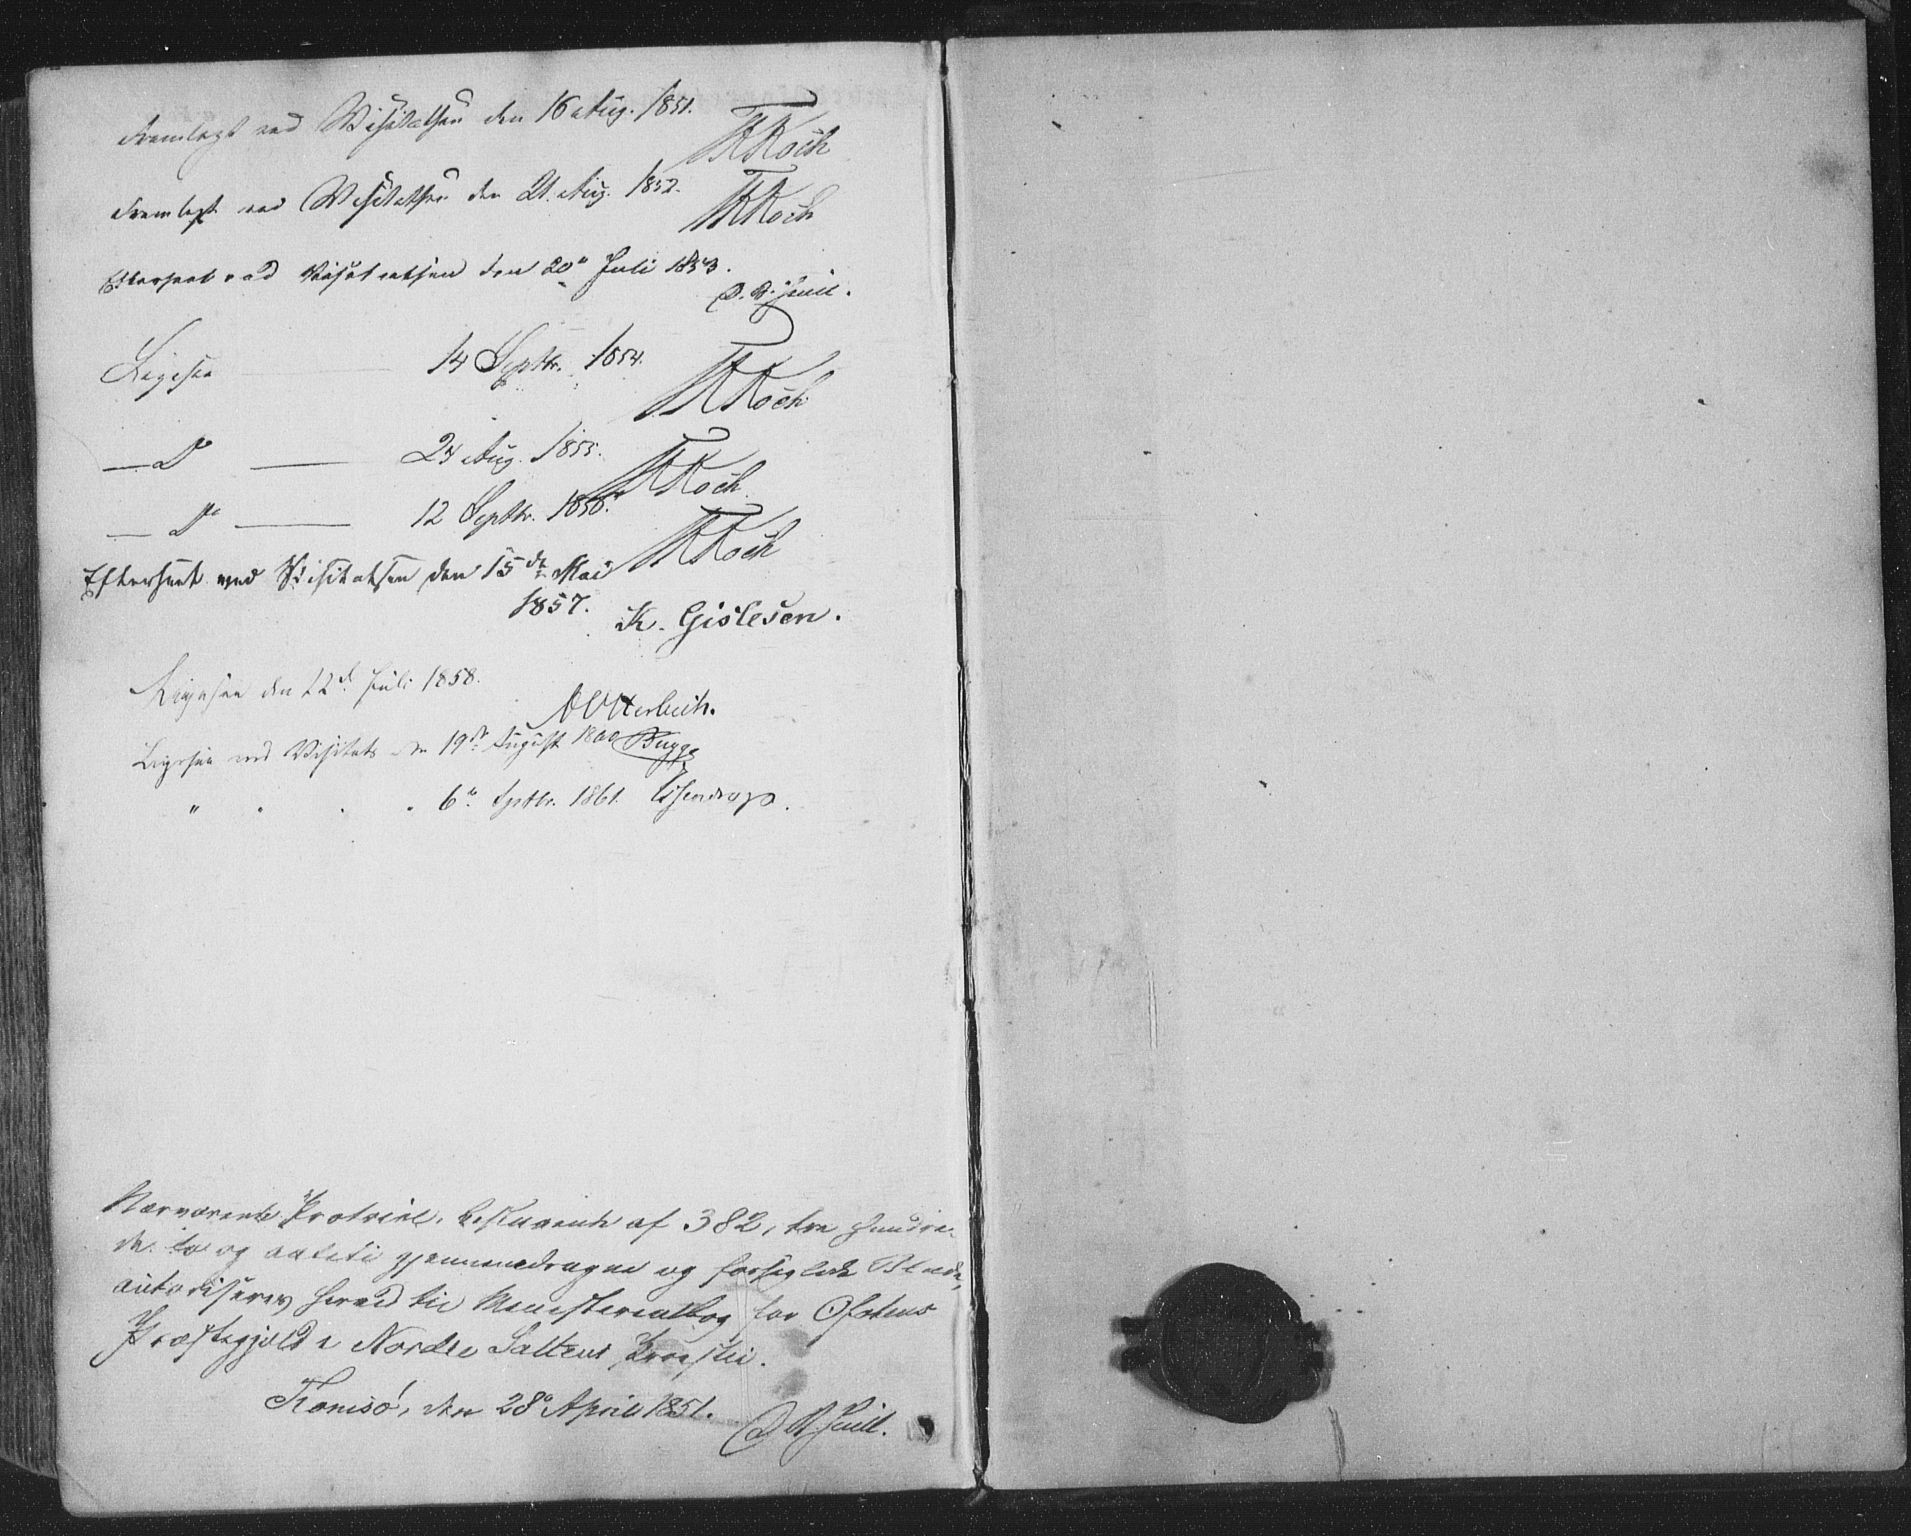 Fremlagt ved Visitatsen den 16 Aug. 1851.
TKKoch
Fremlagt ved Visitatsen den 21. Aug. 1852.
TKKoch
Efterseet ved Visitatsen den 20de Juli 1853.
Ligesaa 14 Septbr. 1854.
TKKoch
— Do — 24 Aug. 1855.
TKKoch
— Do — 12 Septbr. 1856.
TKKoch
Efterseet ved Visitatsen den 15de Mai
1857. K. Gislesen.
Ligesaa den 22d. Juli 1858.
Ligesaa ved Visitats den 19de August 1860 Bugge
" . . . 6te Septbr. 1861.
Nærværende Protocol, bestaaende af 382, tre hundre-
de to og otteti gjennemdragne og forseglede Blade,
autoriseres herved til Ministerialbog for Ofotens
Præstegjeld i Nordre Saltens Provsti.
den 28de April 1851.